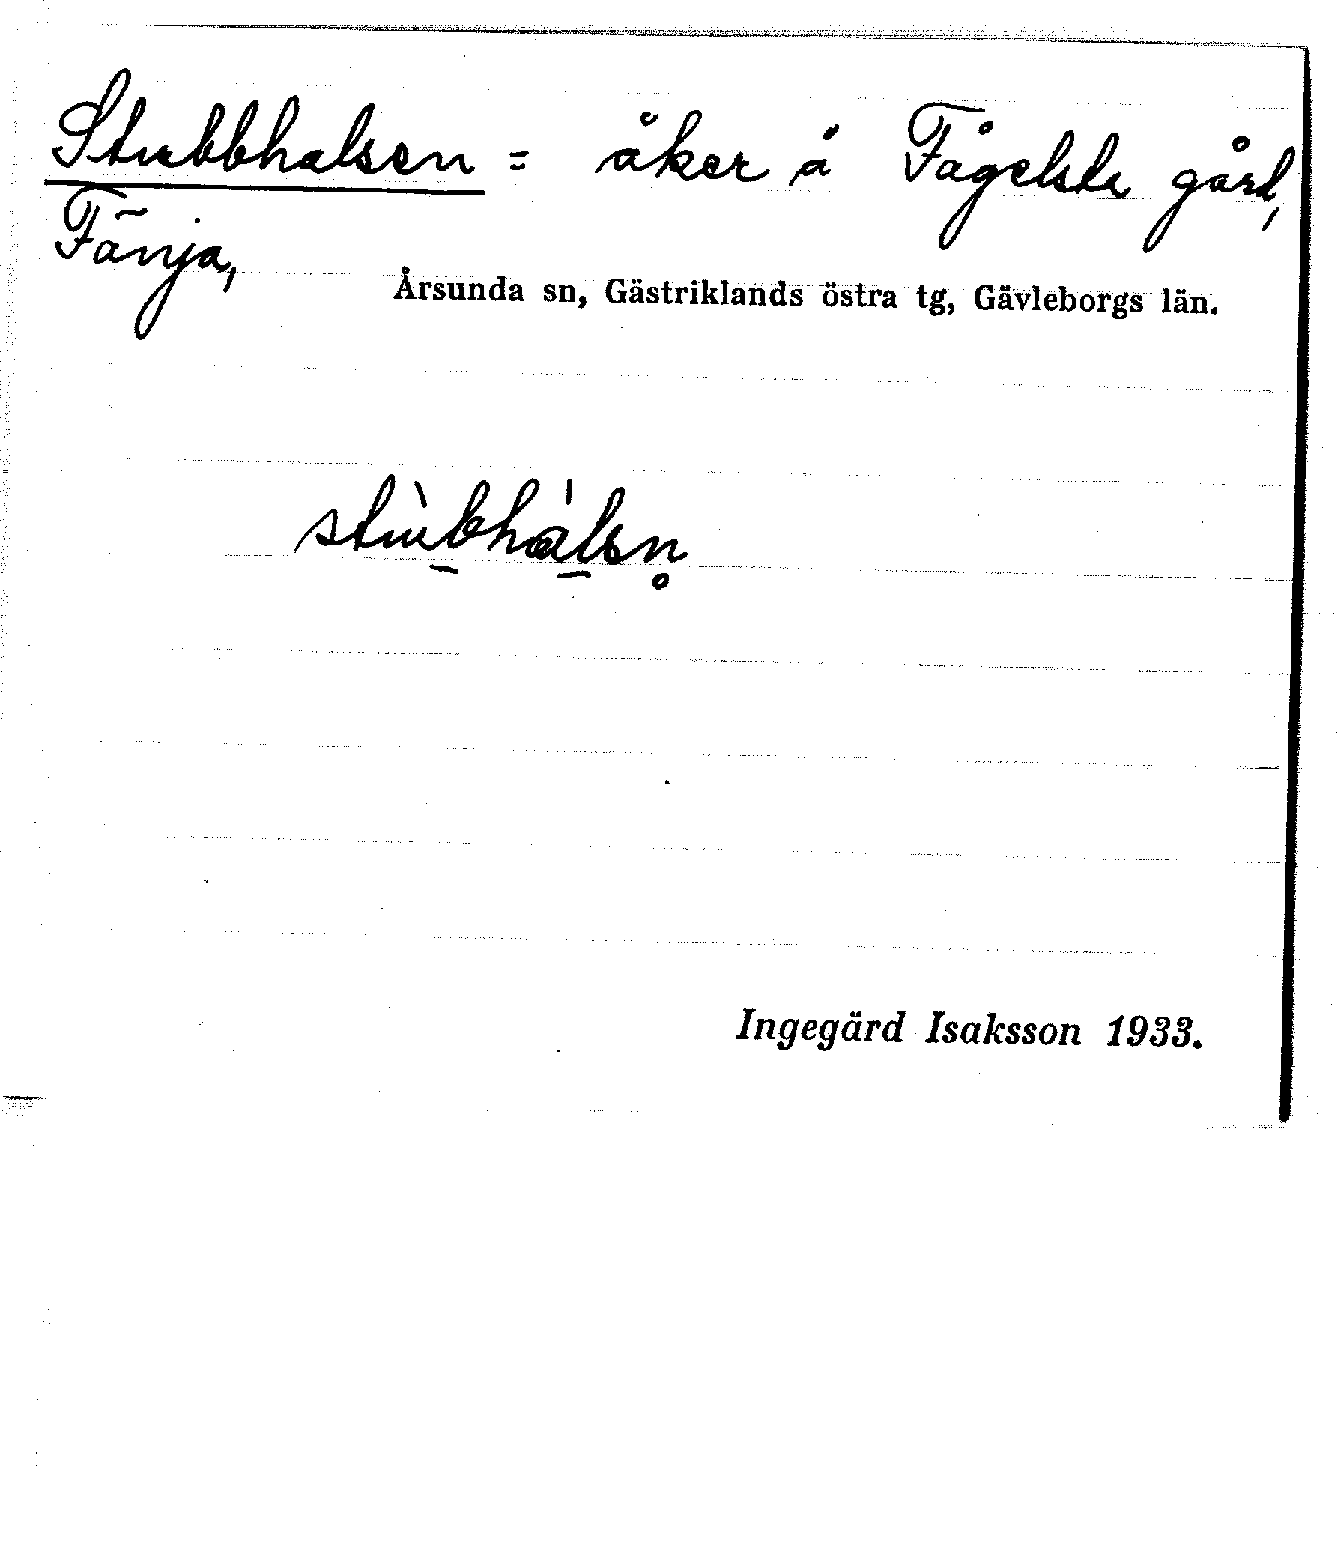 Stubbhalsen = åker å Fågelsta gård,
Fänja,
Årsunda sn, Gästriklands östra tg, Gävleborgs län.
stùb̠hál̠sn̥
Ingegärd Isaksson 1933.